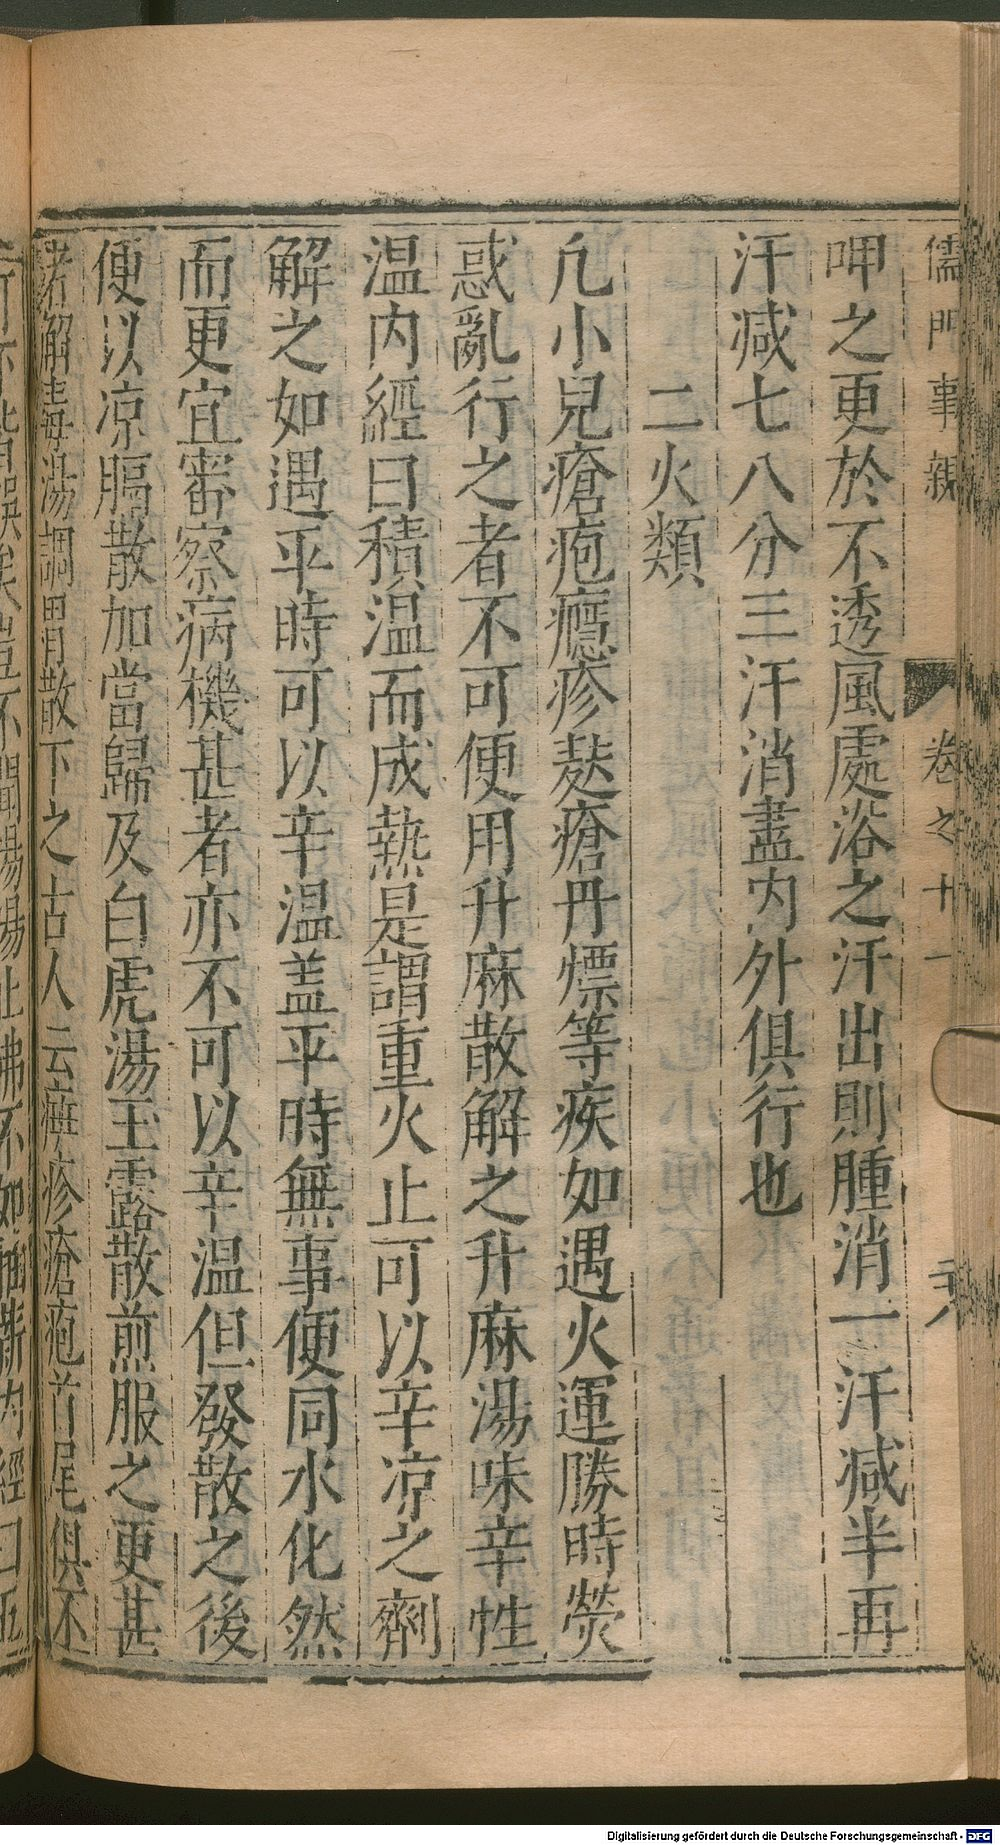 儒門事親　卷之十一　二十八
呷之更於不透風處浴之汗出則腫消一汗减半再
汗减七八分三汗消盡内外俱行也
二火類
凢小兒瘡疱癮疹麸瘡丹熛等疾如遇火運勝時熒
惑亂行之者不可便用升麻散解之升麻湯味辛性
温内經曰積温而成熱是謂重火止可以辛凉之劑
解之如遇平時可以辛温盖平時無事便同水化然
而更宜審察病機甚者亦不可以辛温但發散之後
便以凉膈散加當歸及白虎湯玉露散煎服之更甚
者解毒湯調胃散下之古人云癍疹瘡疱首尾俱不
Digitalisierung gefördert durch die Deutsche Forschungsgemeinschaft - DFG